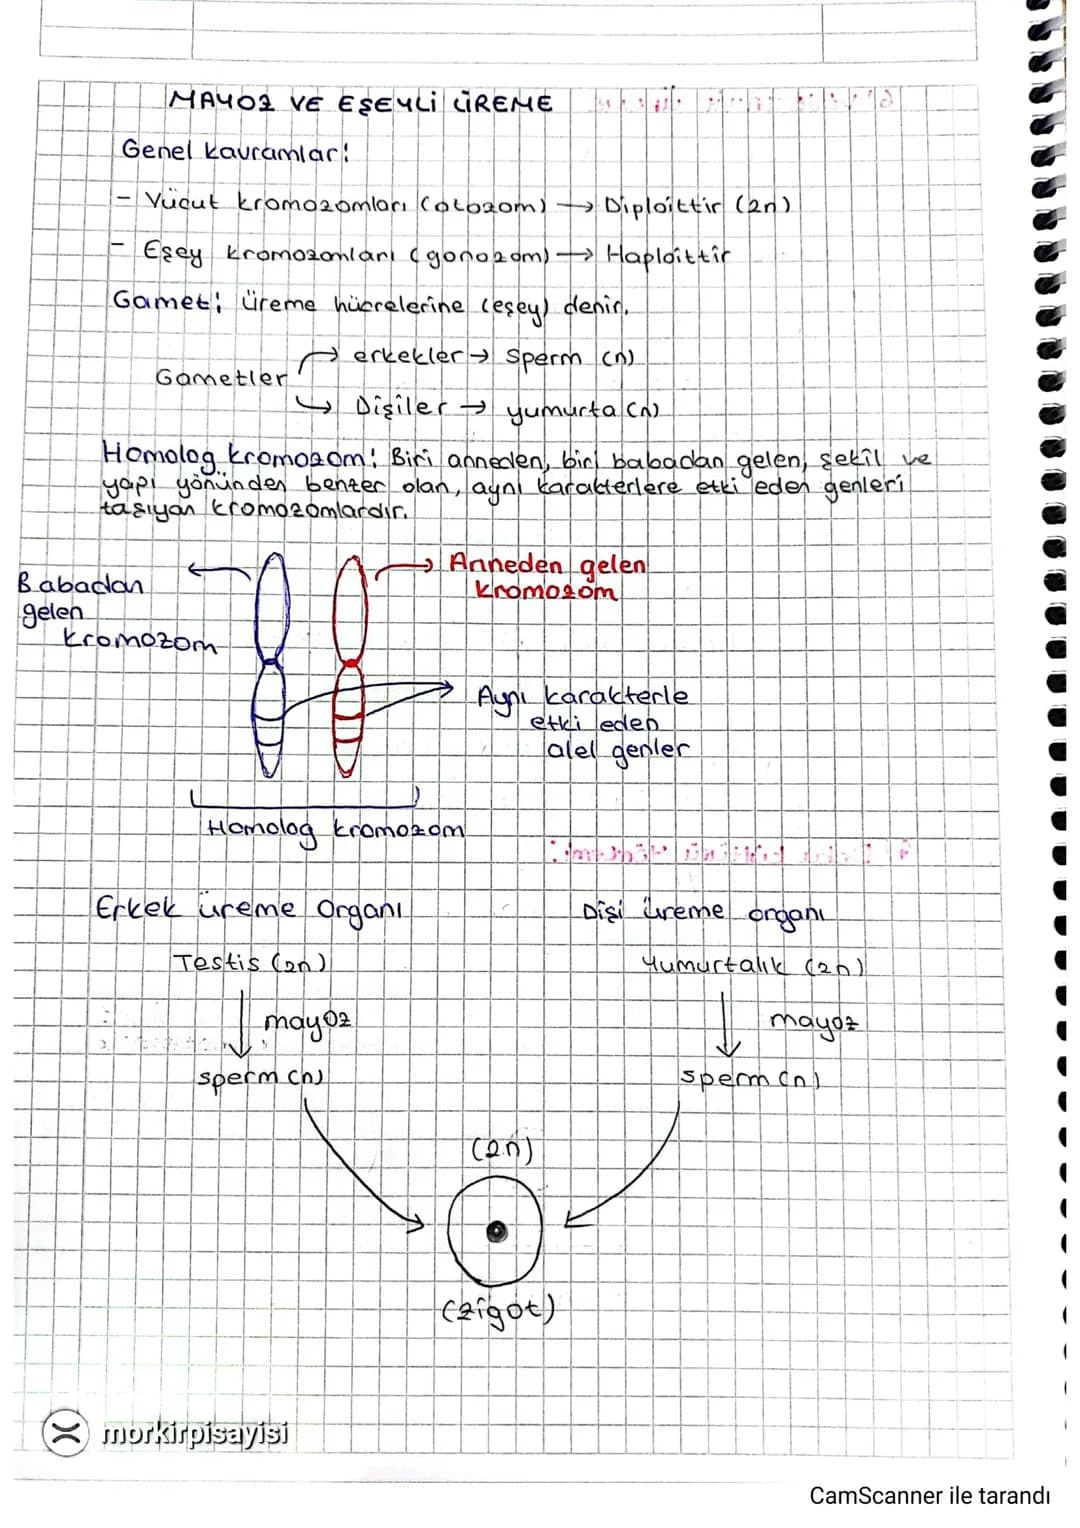 MAYOZ VE EŞEYLİ ÜREME
Genel kavramlar:
- Vücut kromozomları (otozom) → Diploittir (2n)
- Eşey kromozomları (gonozom) → Haploittir
Gamet: üreme hücrelerine (eşey) denir.
erkekler → sperm (n)
Gametler
Dişiler → yumurta (n)
Homolog kromozom: Biri anneden, biri babadan gelen, şekil ve
yapı yönünden benzer olan, aynı karakterlere etki eden genleri
taşıyan kromozomlardır.
Babadan
gelen
kromozom
Anneden gelen
kromozom
Aynı karakterle
etki eden
alel genler
Homolog kromozom
Erkek üreme Organı
Dişi üreme organı
Testis (2n)
Yumurtalık (2n)
mayoz
mayoz
sperm (n)
sperm (n)
(2n)
(zigot)
morkirpisayisi
CamScanner ile tarandı